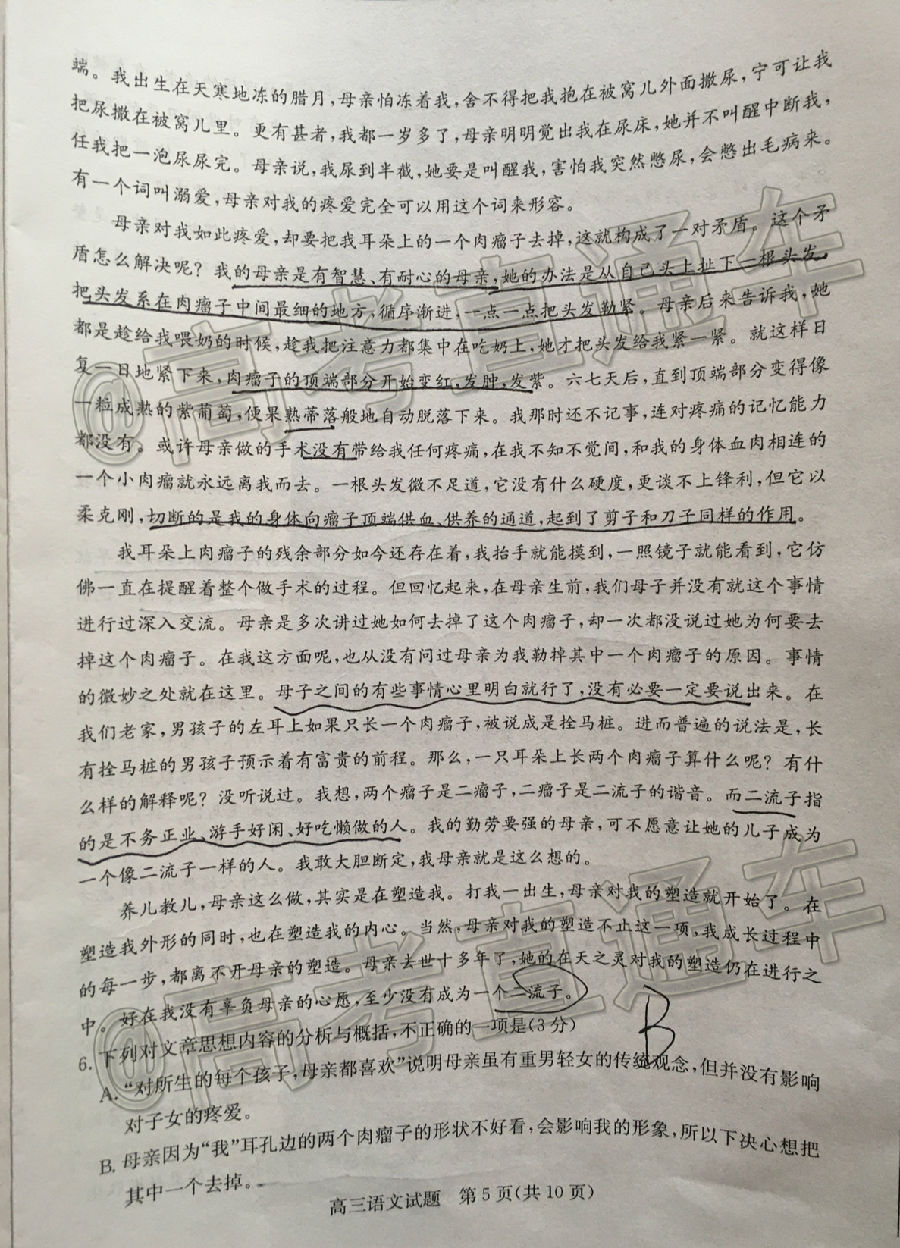 端。我出生在天寒地冻的腊月,母亲怕冻着我,舍不得把我抱在被窝儿外面撒尿,宁可让我
把尿撒在被窝儿里。更有甚者,我都一岁多了,母亲明明觉出我在尿床,她并不叫醒中断我,
任我把一泡尿尿完。母亲说,我尿到半截,她要是叫醒我,害怕我突然憋尿,会憋出毛病来。
有一个词叫溺爱,母亲对我的疼爱完全可以用这个词来形容。
母亲对我如此疼爱,却要把我耳朵上的一个肉瘤子去掉,这就构成了一对矛盾。这个矛
盾怎么解决呢?我的母亲是有智慧、有耐心的母亲,她的办法是从自己头上扯下一根头发,
把头发系在肉瘤子中间最细的地方,循序渐进,一点一点把头发勒紧。母亲后来告诉我,她
都是趁给我喂奶的时候,趁我把注意力都集中在吃奶上,她才把头发给我紧一紧。就这样日
复一日地紧下来,肉瘤子的顶端部分开始变红,发肿,发紫。六七天后,直到顶端部分变得像
一粒成熟的紫葡萄,便果熟蒂落般地自动脱落下来。我那时还不记事,连对疼痛的记忆能力
都没有。或许母亲做的手术没有带给我任何疼痛,在我不知不觉间,和我的身体血肉相连的
一个小肉瘤就永远离我而去。一根头发微不足道,它没有什么硬度,更谈不上锋利,但它以
柔克刚,切断的是我的身体向瘤子顶端供血、供养的通道,起到了剪子和刀子同样的作用。
我耳朵上肉瘤子的残余部分如今还存在着,我抬手就能摸到,一照镜子就能看到,它仿
佛一直在提醒着整个做手术的过程。但回忆起来,在母亲生前,我们母子并没有就这个事情
进行过深入交流。母亲是多次讲过她如何去掉了这个肉瘤子,却一次都没说过她为何要去
掉这个肉瘤子。在我这方面呢,也从没有问过母亲为我勒掉其中一个肉瘤子的原因。事情
的微妙之处就在这里。母子之间的有些事情心里明白就行了,没有必要一定要说出来。在
我们老家,男孩子的左耳上如果只长一个肉瘤子,被说成是拴马桩。进而普遍的说法是,长
有拴马桩的男孩子预示着有富贵的前程。那么,一只耳朵上长两个肉瘤子算什么呢?有什
么样的解释呢?没听说过。我想,两个瘤子是二瘤子,二瘤子是二流子的谐音。而二流子指
的是不务正业、游手好闲、好吃懒做的人。我的勤劳要强的母亲,可不愿意让她的儿子成为
一个像二流子一样的人。我敢大胆断定,我母亲就是这么想的。
养儿教儿,母亲这么做,其实是在塑造我。打我一出生,母亲对我的塑造就开始了。在
塑造我外形的同时,也在塑造我的内心。当然,母亲对我的塑造不止这一项,我成长过程中
的每一步,都离不开母亲的塑造。母亲去世十多年了,她的在天之灵对我的塑造仍在进行之
中。好在我没有辜负母亲的心愿,至少没有成为一个二流子。
6. 下列对文章思想内容的分析与概括,不正确的一项是(3分)
B
A. “对所生的每个孩子,母亲都喜欢”说明母亲虽有重男轻女的传统观念,但并没有影响
对子女的疼爱。
B. 母亲因为“我”耳孔边的两个肉瘤子的形状不好看,会影响我的形象,所以下决心想把
其中一个去掉。
高三语文试题 第5页(共10页)
@高考直通车
@高考直通车